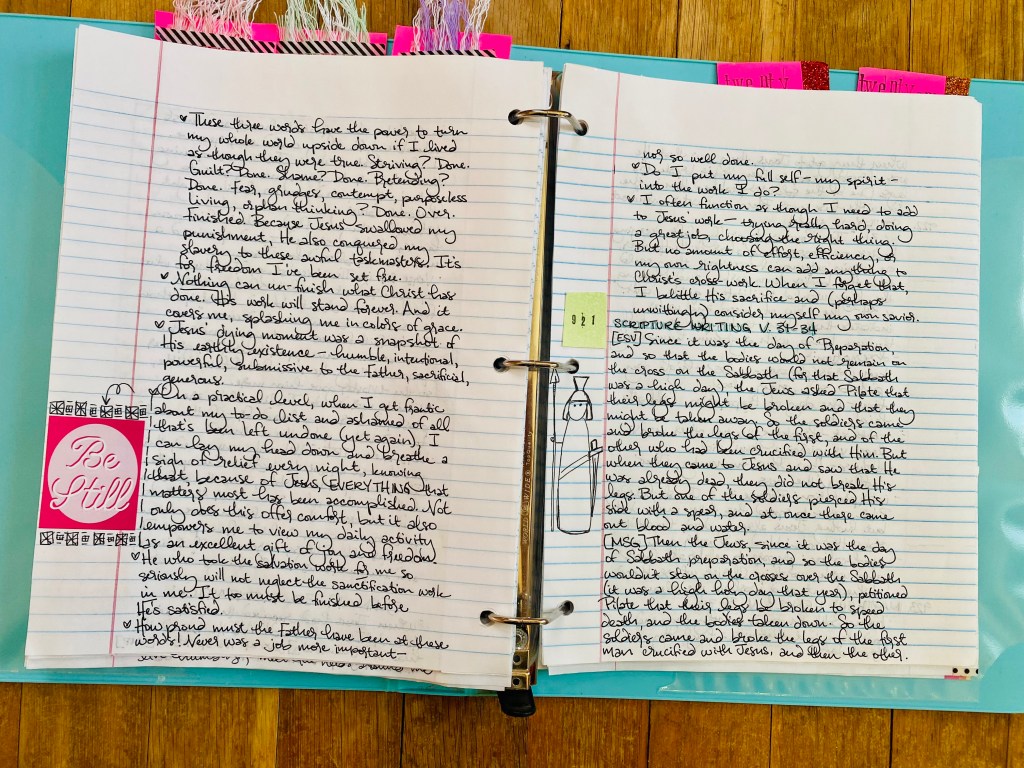 ♥ These three words have the power to turn
my whole world upside down if I lived
as though they were true. Striving? Done.
Guilt? Done. Shame? Done. Pretending?
Done. Fear, grudges, contempt, purposeless
living, orphan thinking? Done. Over.
Finished. Because Jesus swallowed my
punishment, He also conquered my
slavery to these awful taskmasters. It's
for freedom I've been set free.
♥ Nothing can un-finish what Christ has
done. His work will stand forever. And it
covers me, splashing me in colors of grace.
♥ Jesus' dying moment was a snapshot of
His earthly existence - humble, intentional,
powerful, submissive to the Father, sacrificial,
generous.
♥ On a practical level, when I get frantic
about my to-do list and ashamed of all
that's been left undone (yet again), I
can lay my head down and breathe a
sigh of relief every night, knowing
that because of Jesus, EVERYTHING that
matters most has been accomplished. Not
only does this offer comfort, but it also
empowers me to view my daily activity
as an excellent gift of joy and freedom.
♥ He who took the salvation work for me so
seriously will not neglect the sanctification work
in me. It too must be finished before
He's satisfied.
♥ How proud must the Father have been at these
words! Never was a job more important-
Be
Still
twenty
twenty
nor so well done.
♥ Do I put my full self - my spirit -
into the work I do?
♥ I often function as though I need to add
to Jesus' work - trying really hard, doing
a great job, choosing the right thing.
But no amount of effort, efficiency, or
my own rightness can add anything to
Christ's cross-work. When I forget that,
I belittle His sacrifice and (perhaps
unwittingly) consider myself my own savior.
921
SCRIPTURE WRITING V. 31-34
[ESV] Since it was the day of Preparation,
and so that the bodies would not remain on
the cross on the Sabbath (for that Sabbath
was a high day), the Jews asked Pilate that
their legs might be broken and that they
might be taken away. So the soldiers came
and broke the legs of the first, and of the
other who had been crucified with Him. But
when they came to Jesus and saw that He
was already dead, they did not break His
legs. But one of the soldiers pierced His
side with a spear, and at once there came
out blood and water.
[MSG] Then the Jews, since it was the day
of Sabbath preparation, and so the bodies
wouldn't stay on the crosses over the Sabbath
(it was a high holy day that year), petitioned
Pilate that their legs be broken to speed
death, and the bodies taken down. So the
soldiers came and broke the legs of the first
man crucified with Jesus, and then the other.